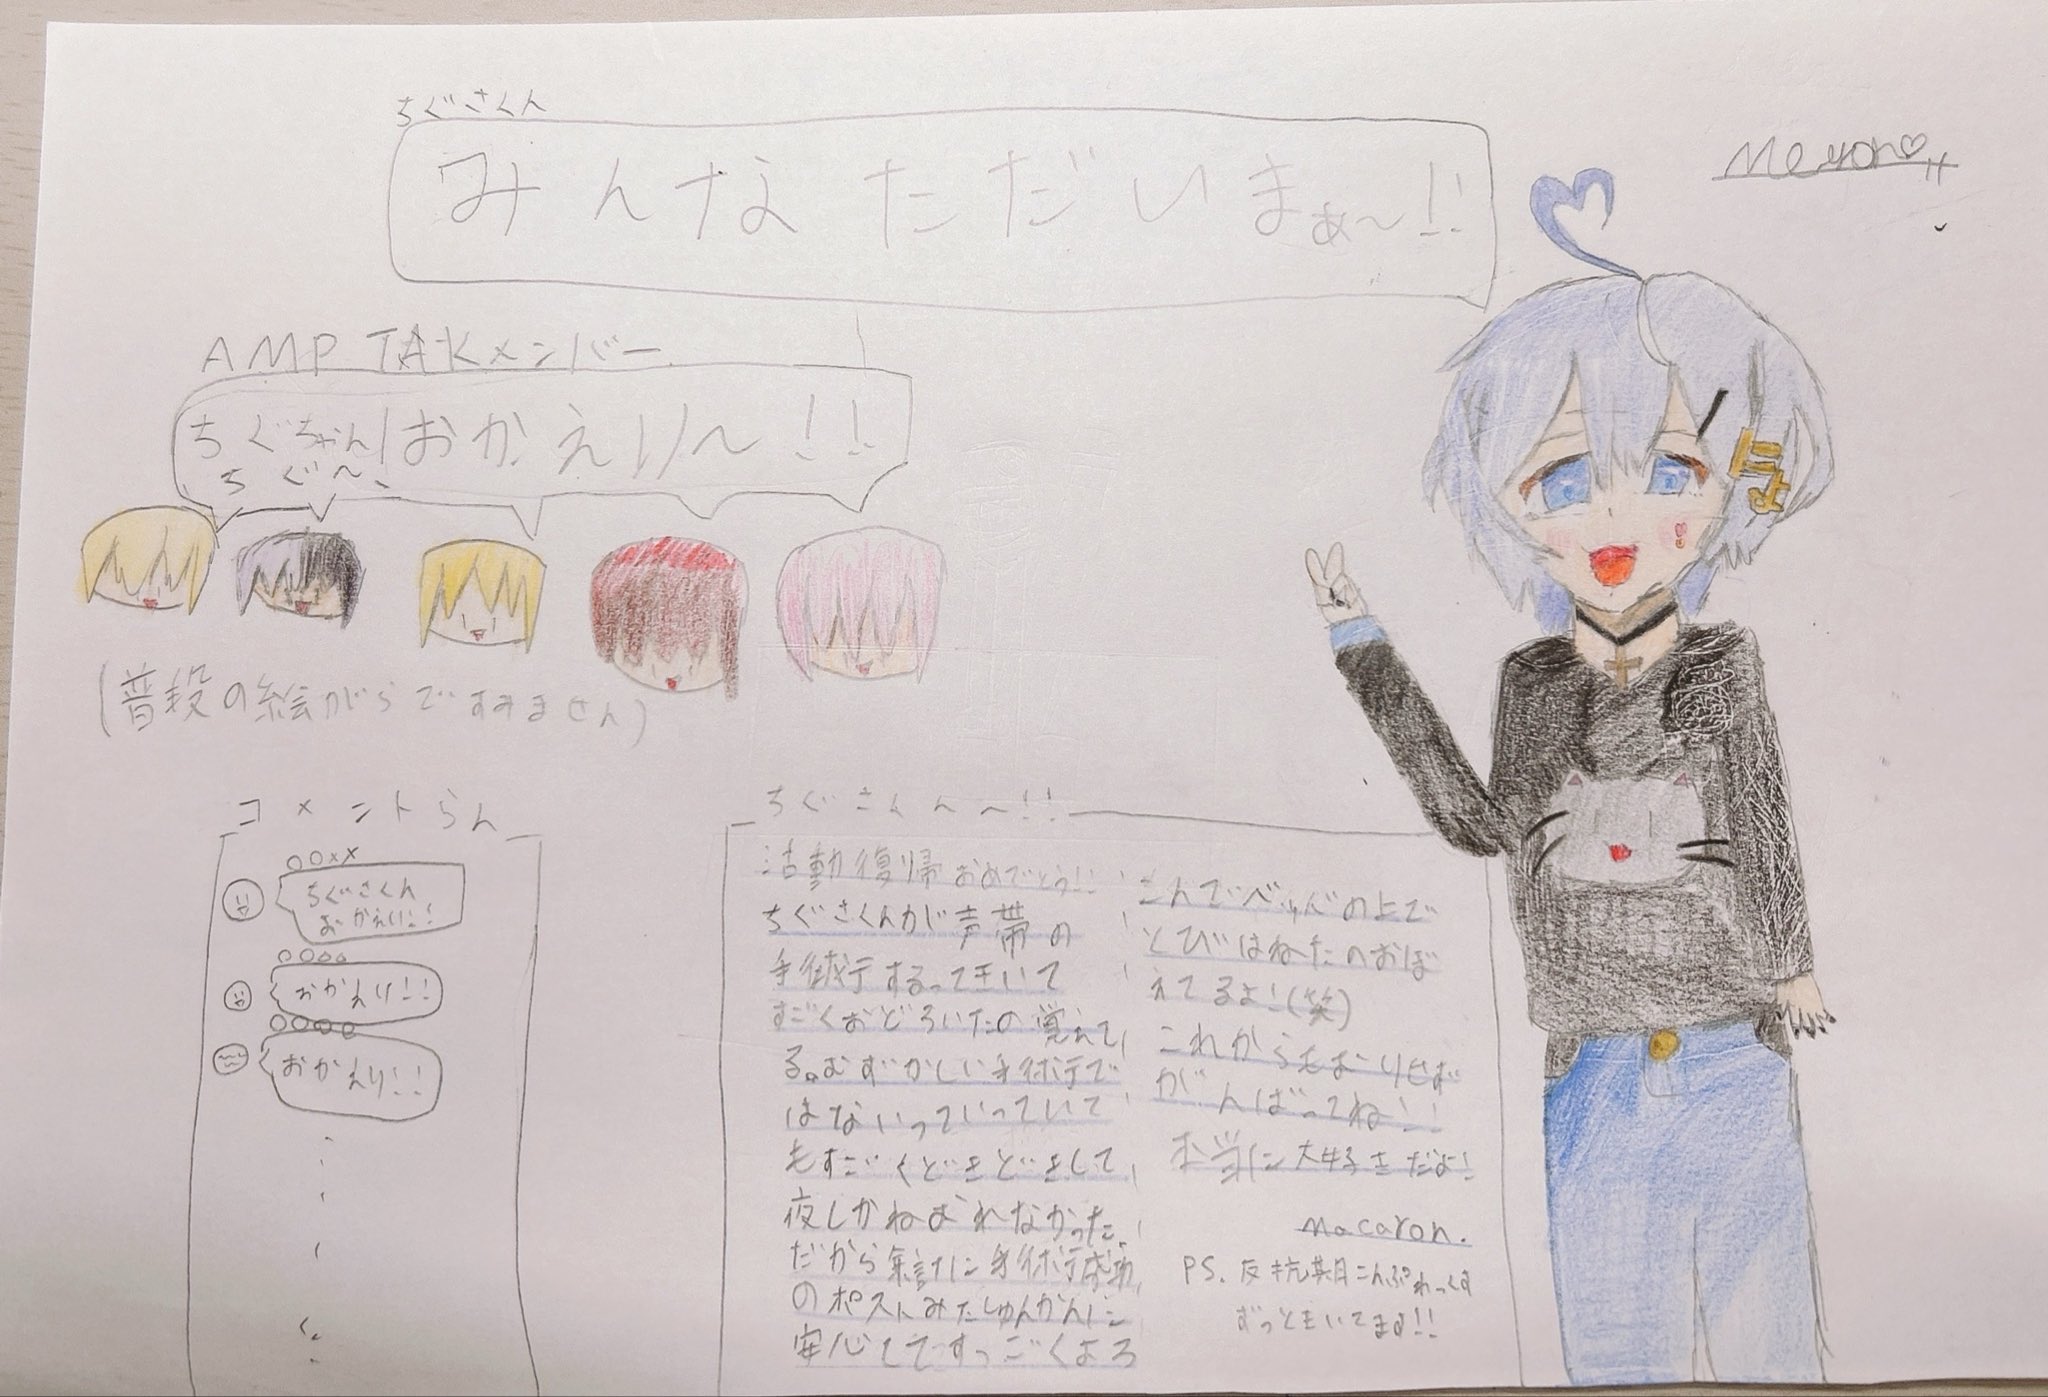 ちぐさくん
みんなただいまぁ〜!!
AMPTAKメンバー
ちぐちゃん!おかえり〜!!
ちぐ〜、
(普段の絵がらですみません)
コメントらん
○○××
ちぐさくん
おかえり!!
○○△△
おかえり!!
○○○○
おかえり!!
ちぐさくん〜!!
活動復帰おめでとう!!
ちぐさくんが声帯の
手術するってきいて
すごくおどろいたの覚えて
る。むずかしい手術で
はないっていっていて
もすごくどきどきして
夜しかねむれなかった。
だから余計に手術成功
のポストみたしゅんかんに
安心してすっごくよろ
こんでベッドの上で
とびはねたのおぼ
えてるよ!(笑)
これからもむりせず
がんばってね!!
本当に大好きだよ!
macaron.
PS.反抗期こんぷれっくす
ずっときいてます!!
ちよ